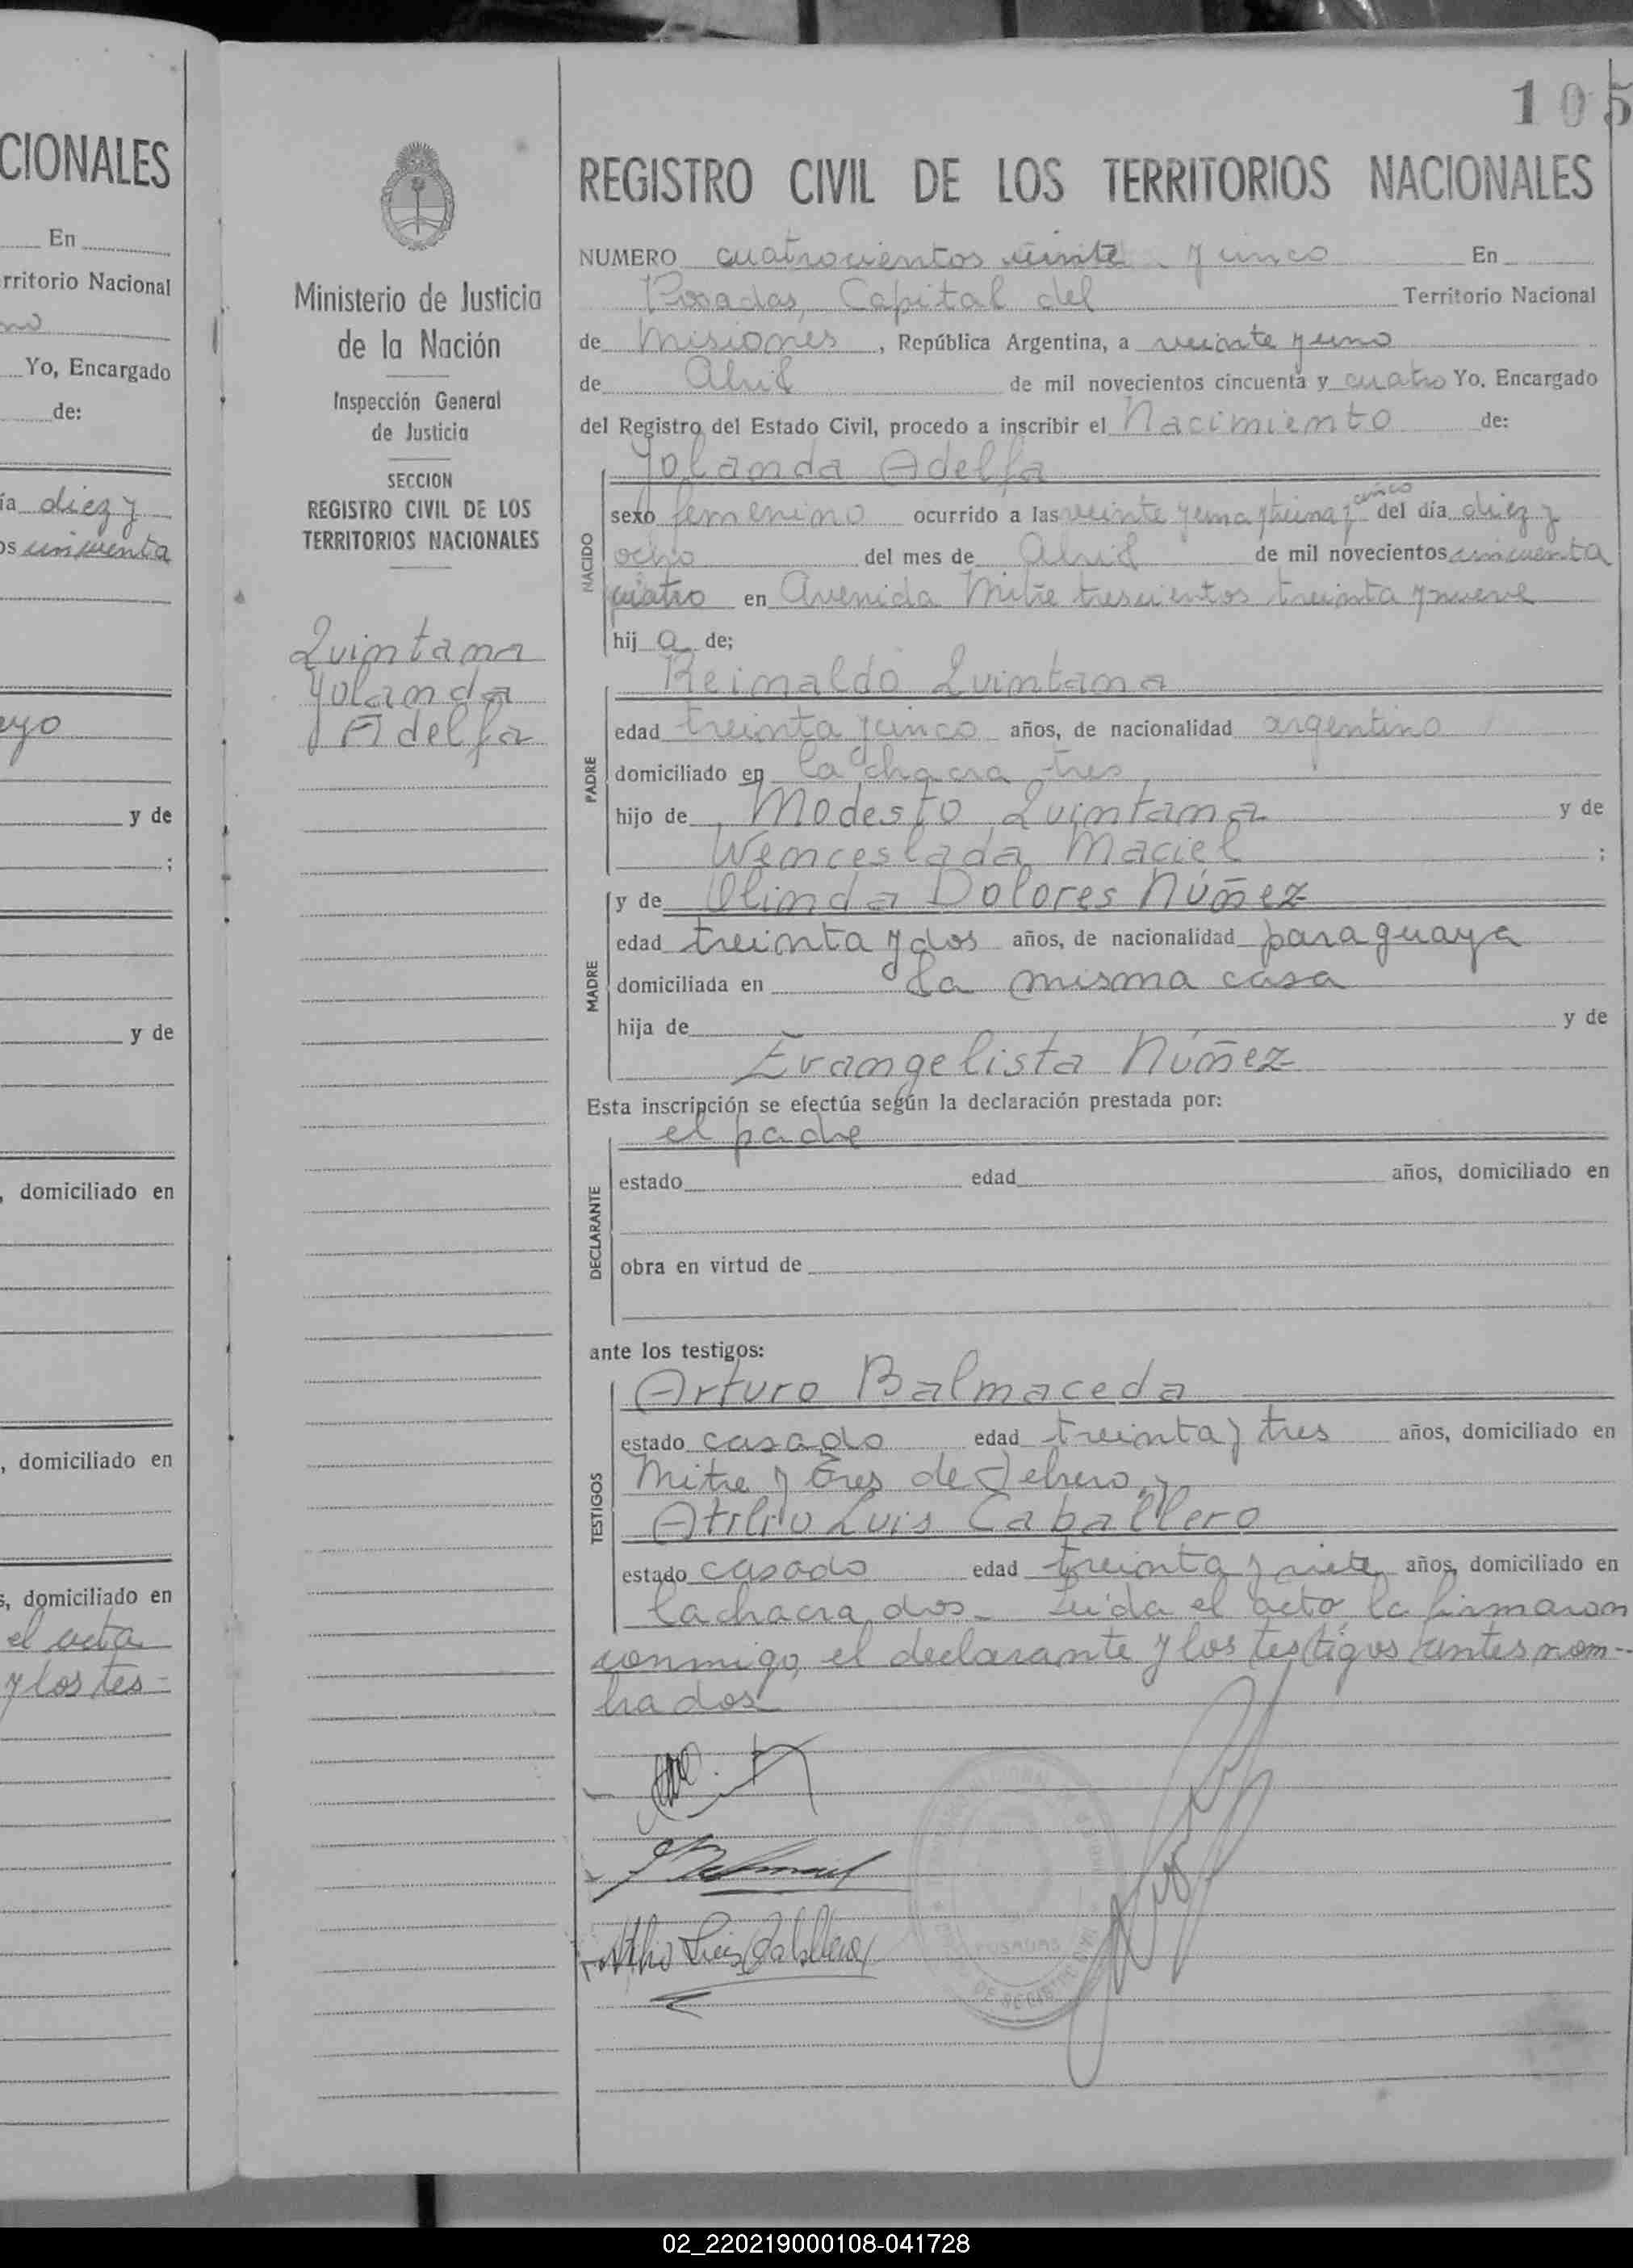 CIONALES
En
rritorio Nacional
no
Yo, Encargado
de:
ía diez y
os cincuenta
eyo
y de
;
y de
, domiciliado en
, domiciliado en
s, domiciliado en
el acta
y los tes-
Ministerio de Justicia
de la Nación
Inspección General
de Justicia
SECCION
REGISTRO CIVIL DE LOS
TERRITORIOS NACIONALES
Quintana
Yolanda
Adelfa
105
REGISTRO CIVIL DE LOS TERRITORIOS NACIONALES
NUMERO cuatrocientos veinte y cinco En
Posadas, Capital del Territorio Nacional
de Misiones, República Argentina, a veinte y uno
de Abril de mil novecientos cincuenta y cuatro Yo, Encargado
del Registro del Estado Civil, procedo a inscribir el Nacimiento de:
Yolanda Adelfa
NACIDO
sexo femenino ocurrido a las veinte y una y treinta y cinco del día diez y
ocho del mes de Abril de mil novecientos cincuenta
cuatro en Avenida Mitre trescientos treinta y nueve
hija de;
Reinaldo Quintana
PADRE
edad treinta y cinco años, de nacionalidad argentino
domiciliado en la chacra tres
hijo de Modesto Quintana y de
Wenceslada Maciel ;
y de Olinda Dolores Núñez
MADRE
edad treinta y dos años, de nacionalidad paraguaya
domiciliada en la misma casa
hija de y de
Evangelista Núñez
Esta inscripción se efectúa según la declaración prestada por:
el padre
DECLARANTE
estado edad años, domiciliado en
obra en virtud de
ante los testigos:
Arturo Balmaceda
TESTIGOS
estado casado edad treinta y tres años, domiciliado en
Mitre y Tres de Febrero, y
Atilio Luis Caballero
estado casado edad treinta y siete años, domiciliado en
la chacra dos.- Leída el acto la firmaron
conmigo, el declarante y los testigos antes nom-
brados
Atilio Luis Caballero
POSADAS
02_220219000108-041728